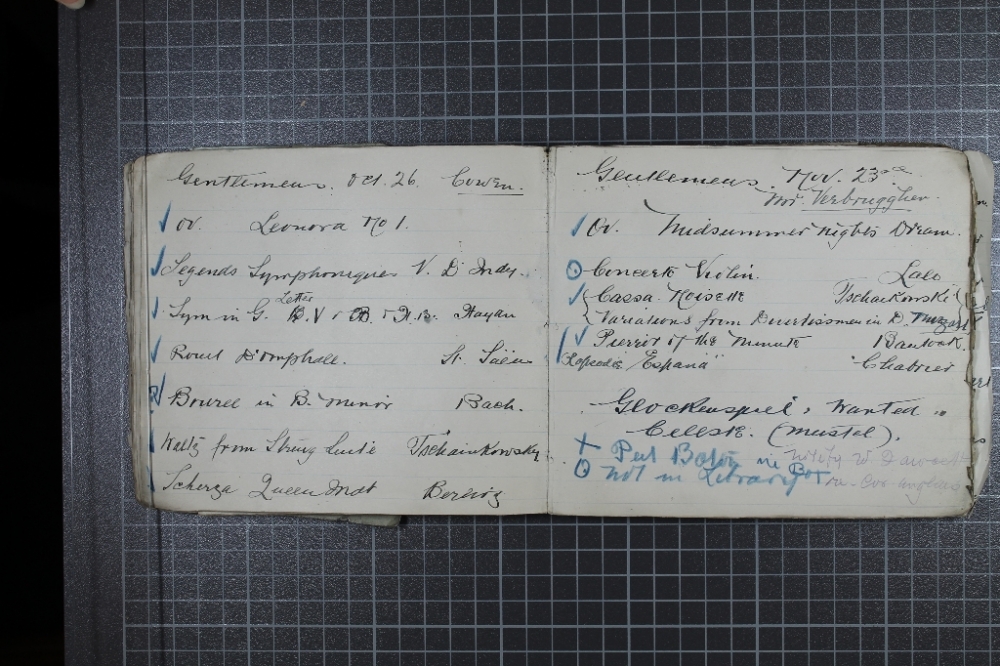 Gentlemens. Oct. 26. Cowen.
Ov. Leonora No 1.
Legends Symphoniques V. D'Indy.
Letter
Sym in G. B.V & B. & H. Haydn
Rouet D'omphale. St. Saëns
Bouree in B. minor Bach.
Waltz from String Suite Tschainkowsky
Scherza Queen Mab Berlioz
Gentlemens. Nov. 23rd
Mr. Verbrugghen.
Ov. Midsummer nights Dream.
Concerto Violin. Lalo
Cassa. Noisette Tschaikowski
Variations from Divertissmen in D. Mozart
Pierrot of the Minute Bantock.
Rapsodie "Espana" "Chabrier
Glockenspiel, Wanted
Celeste. (Mustel).
Put Baton in Box
not in Library for
notify W.